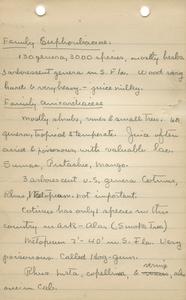 Family Euphorbiaceae:
130 genera, 3000 species, mostly herbs
3 arborescent genera in S. Fla. Wood very
hard & very heavy - juice milky.
Family Anacardiaceae
mostly shrubs, vines & small trees. 60
genera, tropical & temperate. Juice often
acrid & poisonous with valuable lac.
Sumac, Pistachio, Mango.
3 arborescent U.S. genera Cotinus,
Rhus, Metopium. Not important.
Cotinus has only 1 species in this
country in Ark - Ala. (Smoke Tree)
Metopium 7" - 40' in S. Fla. Very
poisonous. Called Hog-gum.
Rhus hirta, copallina, & vernix, also
one in Cal.